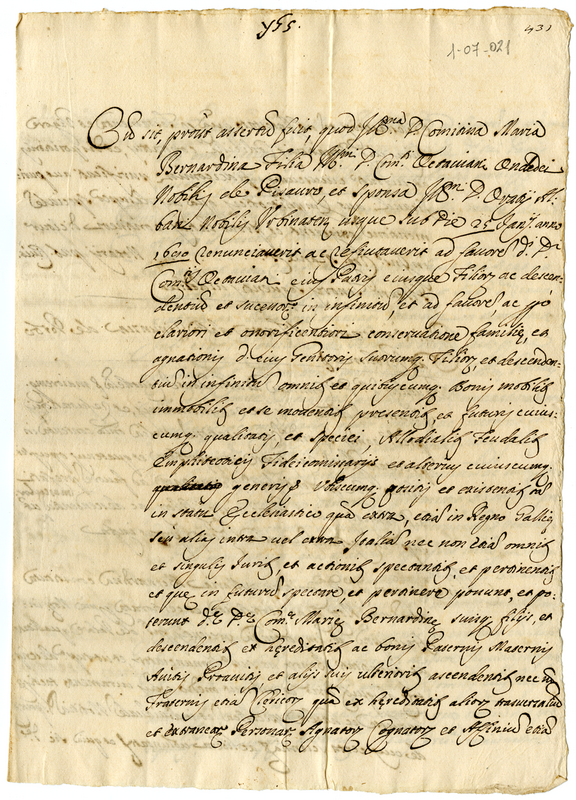 yhs.
431
1-07-021
Cu sit, prout assertu fuit, quod Illma D. Comitina Maria
Bernardina Filia Illmi D. Com. Octaviani Ondedei
Nobilis de Pisauro, et sponsa Illmi D.
Nobilis Urbinaten usque sub Die 25 Janj. anno
1690 renunciaverit ac refutaverit ad favore d. D.
Com. Octaviani eius Patris eiusque Filior ac descen-
dentiu et succesor in infinitu, et ad favore, ac pro
clariori et onorificentiori conservatione familie, et
agnationis d. eius Genitoris suorumq. Filior, et descenden-
tiu in infinitu omnib et quibuscumq. Bonis mobilib
immobilib et se moventib presentib, et futuris cuius-
cumq. qualitatis, et speciei, Allodialib feudalib
Emphiteoticis Fideicommissarijs et alterius cuiuscumq.
generis Ubicumq. positis et existentib ta
in statu Ecclesiastico qua extra, etia in Regno Gallie
seu alias intra vel extra Italia nec non etia omnib
et singulis Jurib et actionib spectantib, et pertinentib
et que in futuru spectare et pertinere possunt, et po-
terunt d. D. Com. Marie Bernardine suisq. filijs, et
descendentib ex hereditatib ac bonis Paternis Maternis
Avitis Proavitis et alijs suis ulteriorib ascendentib nec
Fraternis etia qua ex hereditatib alior trasversaliu
et extranear Personar Agnator Cognator et Affiniu etia